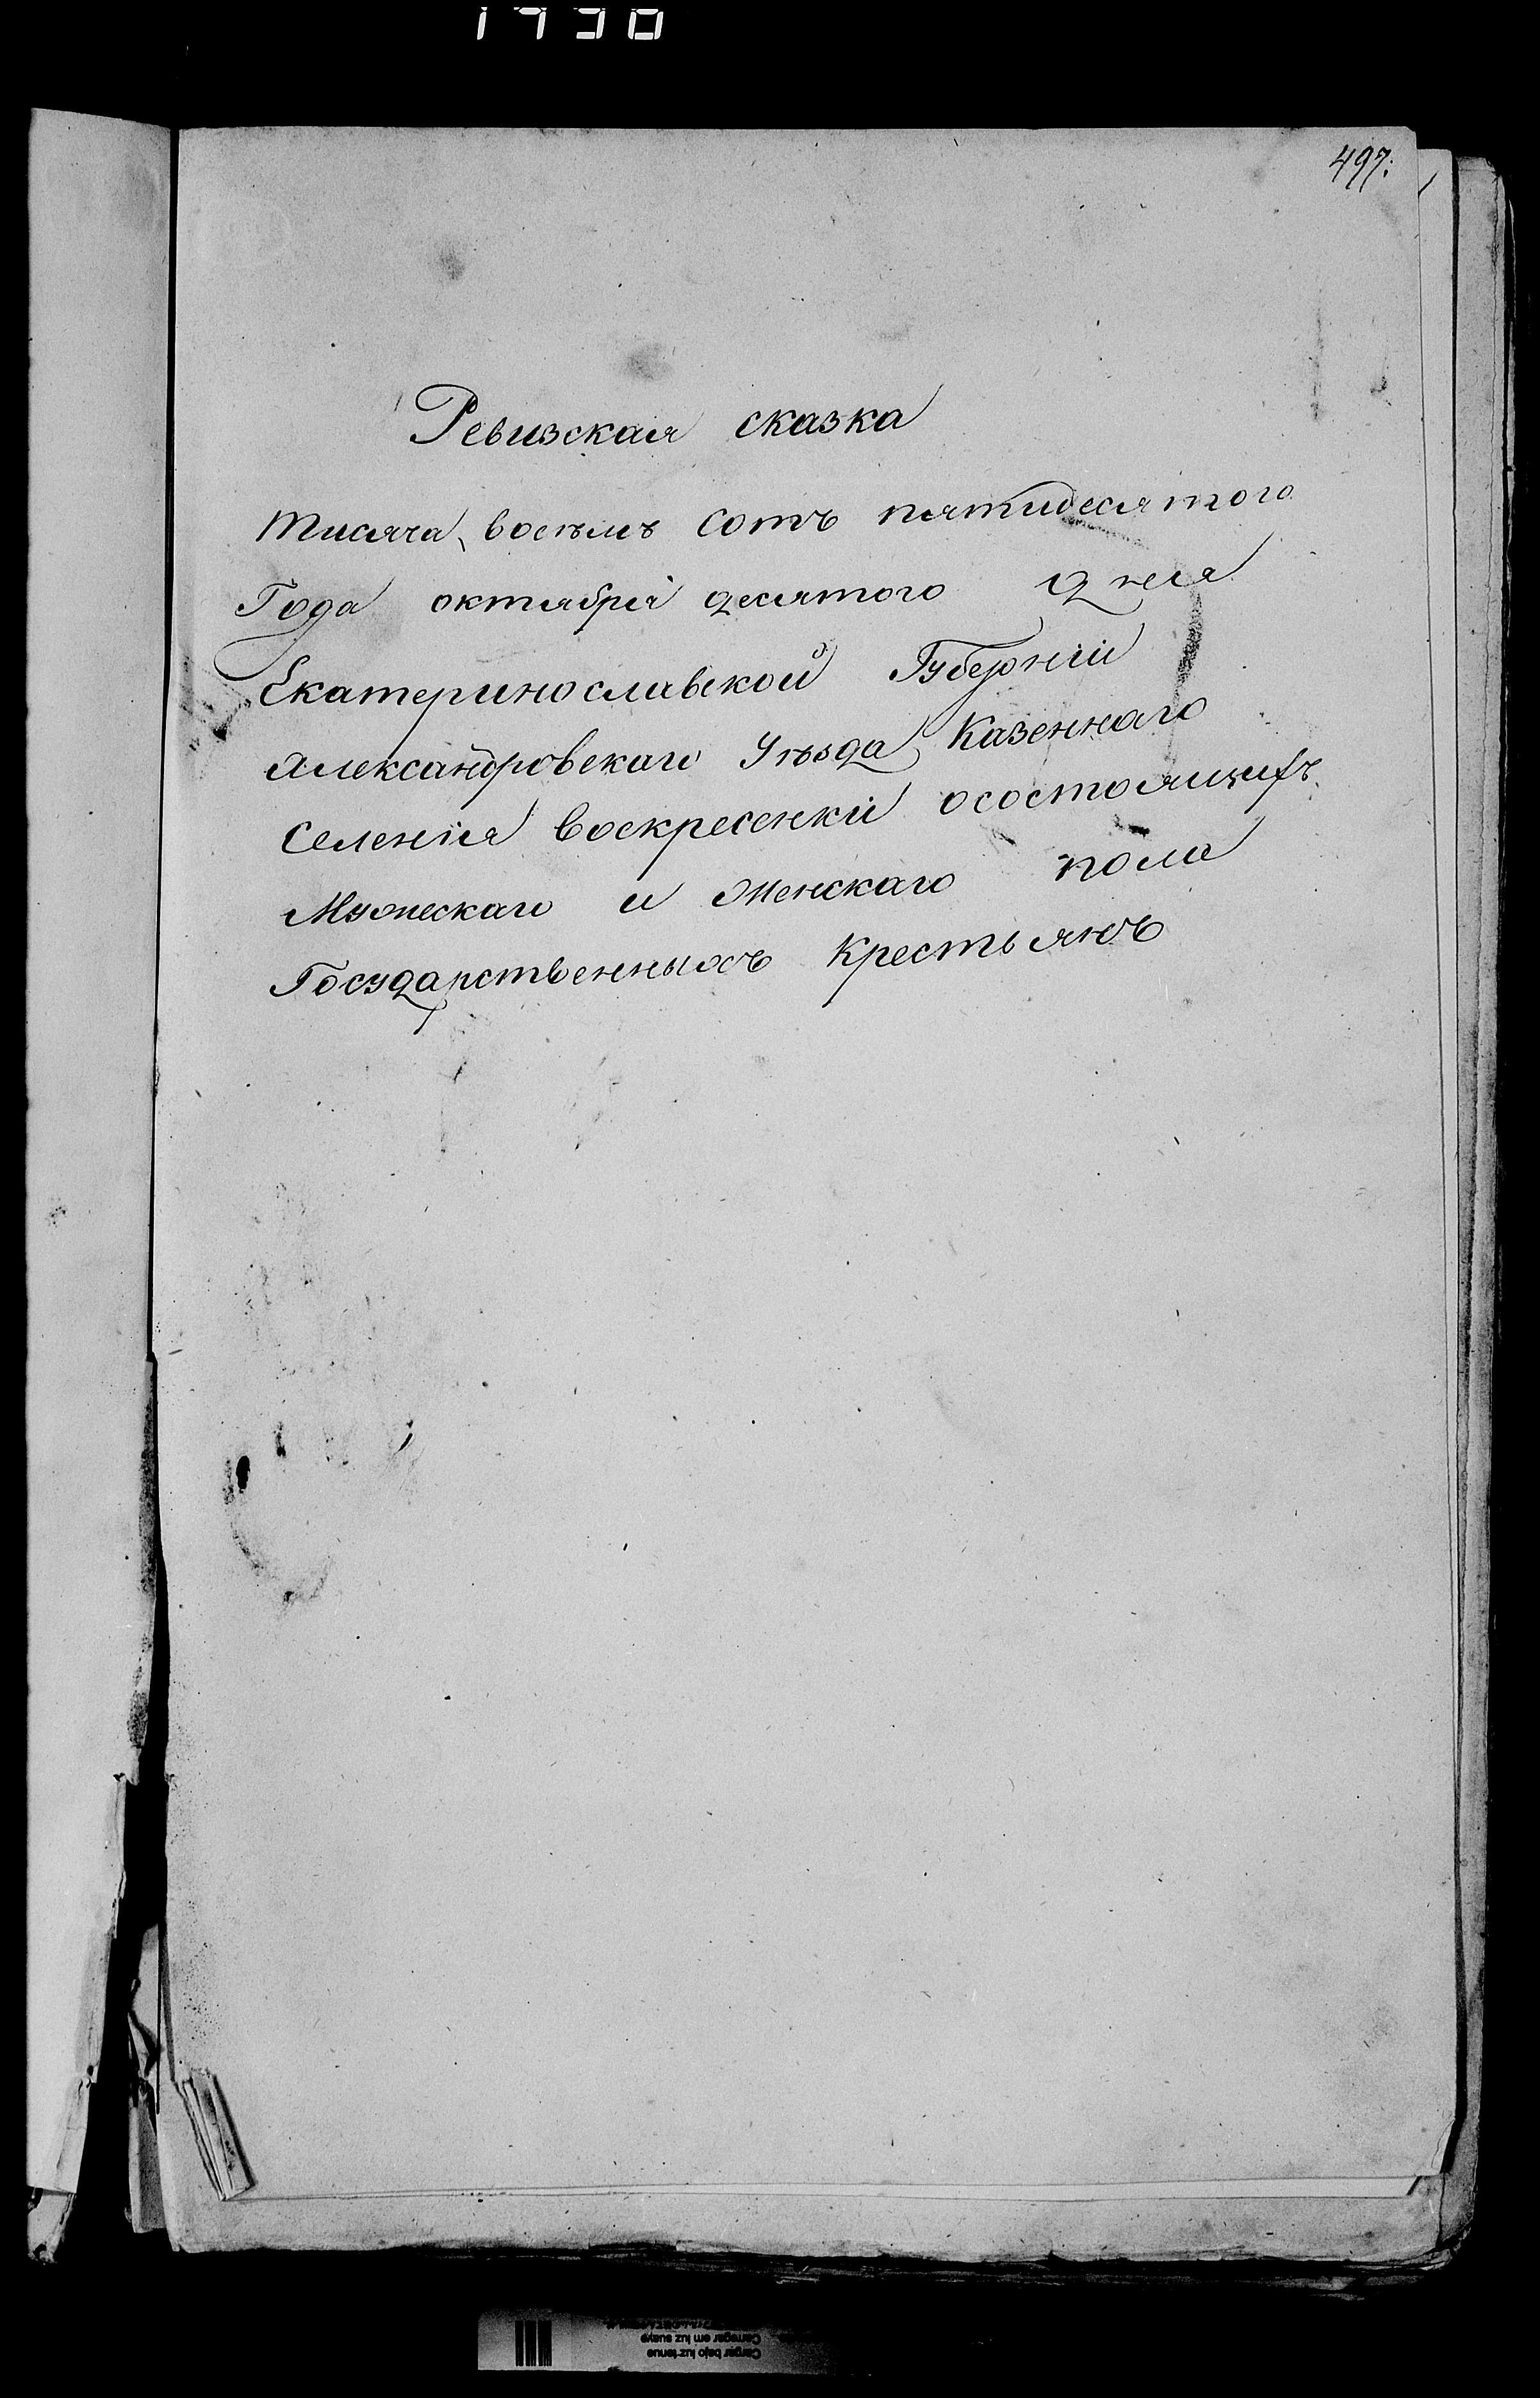 497.
Ревизская сказка
тисяча восемъ сотъ пятидесятого
Года октября десятого дня
Екатеринославской Губерніи
Александровскаго Уѣзда Казеннаго
Селенія Воскресенки осостоящихъ
Мужескаго и Женскаго пола
Государственныхъ Крестьянъ